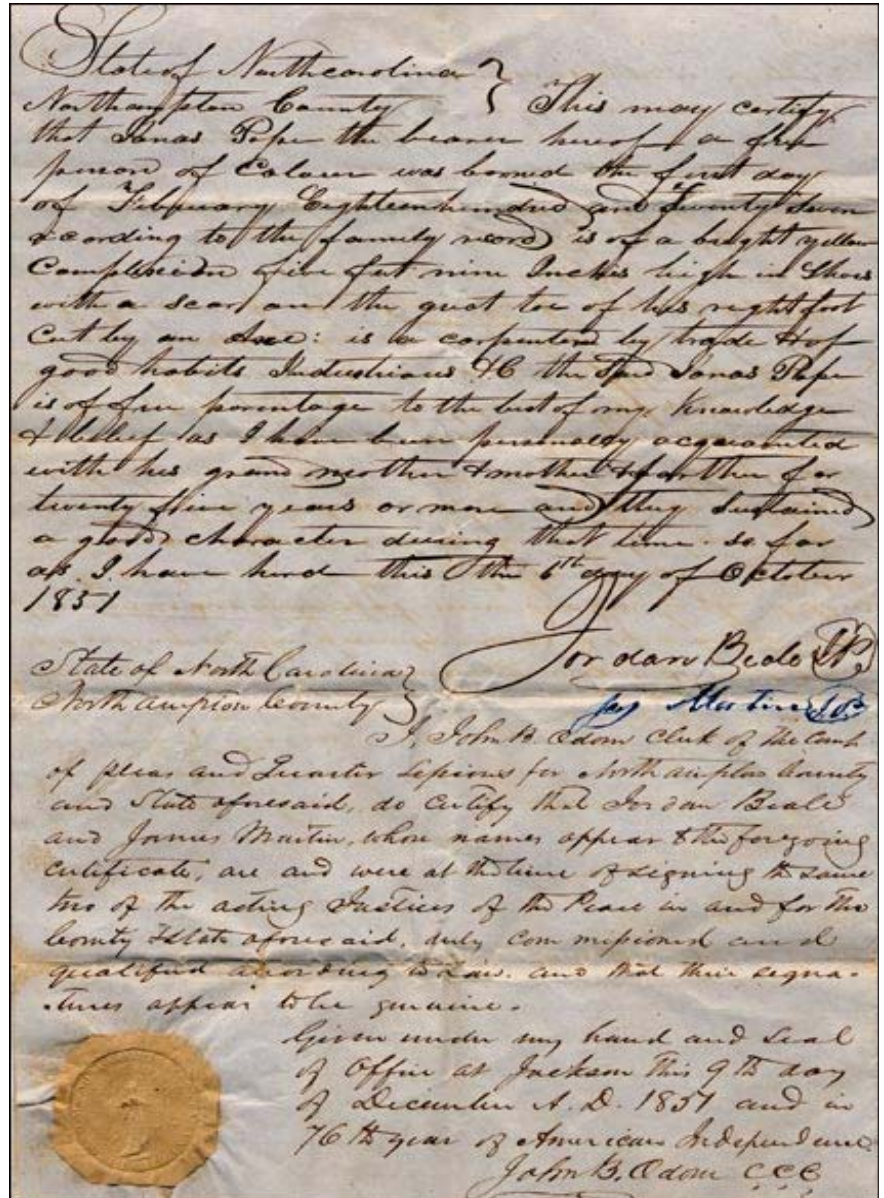 State of Northcarolina
Northampton County This may certify
that Jonas Pope the bearer hereof a free
person of Colour was borned the first day
of February Eighteenhundred and Twenty Seven
acording to the family record is of a bright yellow
Complexion five feet nine Inches high in Shoes
with a scar on the great toe of his right foot
Cut by an Axe: is a carpenter by trade & of
good habits Industrious &C the Said Jonas Pope
is of free parentage to the best of my Knowledge
& belief as I have been personally acquainted
with his grand mother & mother & farther for
twenty five years or more and they Sustained
a good character during that time so far
as I have herd this the 6th day of October
1851
Jordan Beale J.P.
State of North Carolina
Northampton County
Jas Martin J.P.
I, John B. Odom Clerk of the Court
of pleas and Quarter Sessions for Northampton County
and State aforesaid, do certify that Jordan Beale
and James Martin, whose names appear to the foregoing
certificate, are and were at the time of signing the same
two of the acting Justices of the Peace in and for the
County & State aforesaid, duly commissioned and
qualified according to Law. and that their signa-
-tures appear to be genuine.
Given under my hand and Seal
of Office at Jackson this 9th day
of December A.D. 1851 and in
76th year of American Independence
John B. Odom C.C.C